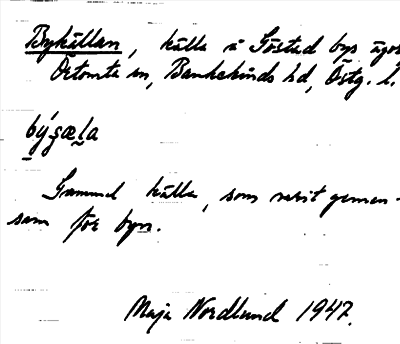 Bykällan, källa å Göstad bys ägor
Örtomta sn, Bankekinds hd, Östg. l.
býçæla
Gammal källa, som varit gemen-
sam för byn.
Maja Nordlund 1947.